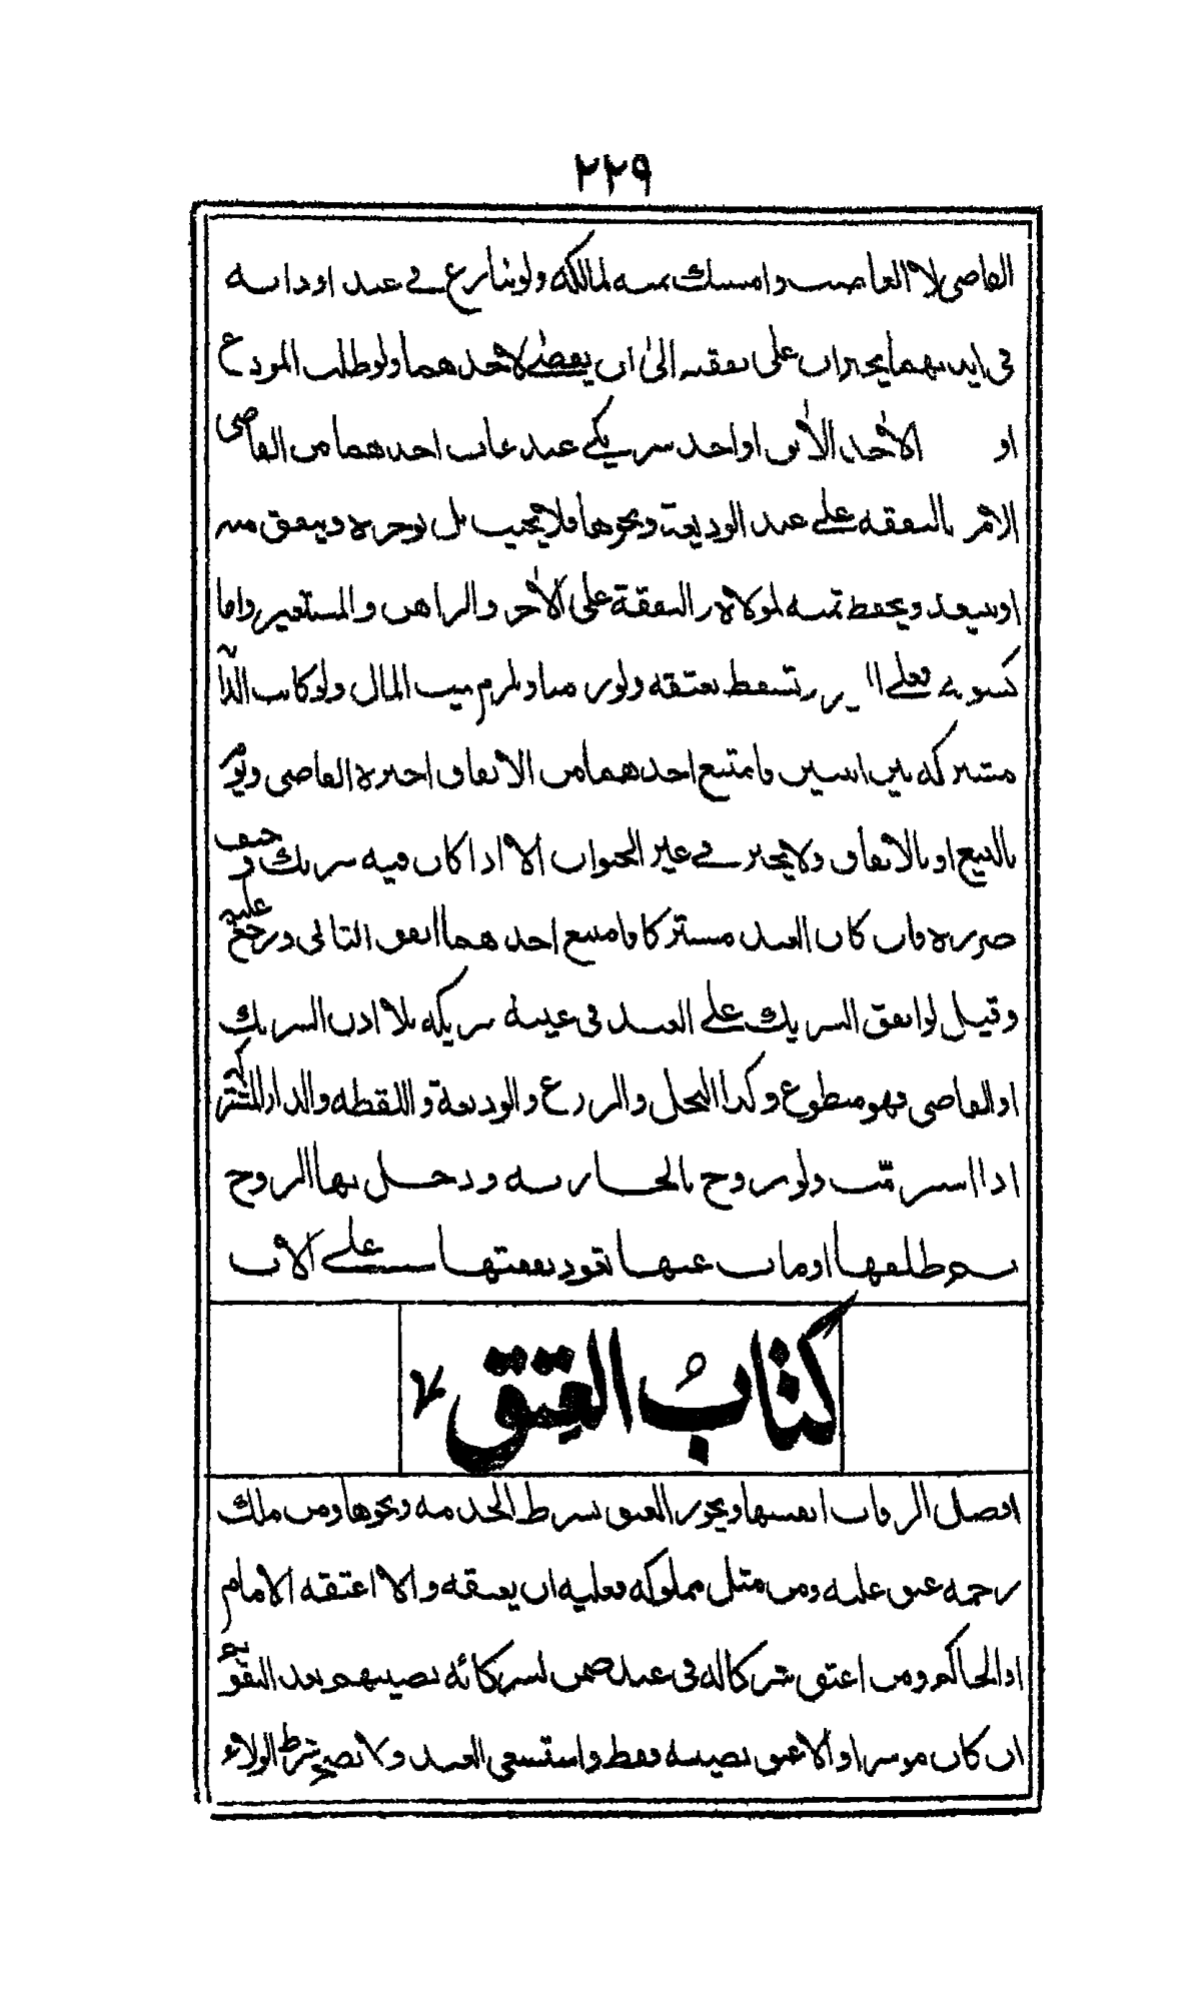 ٢٢٩
القاضى لا الغاصب وامسك ثمنه لمالكه ولو تنازع فى عبد او دابة
فى ايديهما يجبران على نفقته الى ان يقضى لاحدهما ولو طلب المودع
او الآخذ الآبق او احد شريكى عبد غاب احدهما من القاضى
الامر بالنفقة على عبد الوديعة ونحوها فلا يجيب بل يوجره وينفق منه
او يبيعه ويحفظ ثمنه لمولاه والنفقة على الآجر والراهن والمستعير واما
كسوته فعلى وتسقط بعتقه ولو زمنا وتلزم بيت المال ولو كانت الدابة
مشتركة بين اثنين فامتنع احدهما من الانفاق اجبره القاضى
بالبيع او بالانفاق ولا يجبر فى غير الحيوان الا اذا كان فيه شريك وخيف
ضرره فان كان العبد مشتركا فامتنع احدهما انفق الثانى ورجع عليه
وقيل لو انفق الشريك على العبد فى غيبة شريكه بلا اذن الشريك
او القاضى فهو متطوع وكذا النخل والزرع والوديعة واللقطة والدار المشتركة
اذا استرمت ولو تزوج بالجارية ودخل بها الزوج
ثم طلقها او مات عنها تعود نفقتها على الاب
كتاب العتق
افضل الرقاب انفسها ويجوز العتق بشرط الخدمة ونحوها ومن ملك
رحمه عتق عليه ومن مثل بمملوكه فعليه ان يعتقه والا اعتقه الامام
او الحاكم ومن اعتق شركا له فى عبد ضمن لشركائه نصيبهم بعد التقويم
ان كان موسرا والا عتق نصيبه فقط واستسعى العبد ولا يصح شرط الولاء